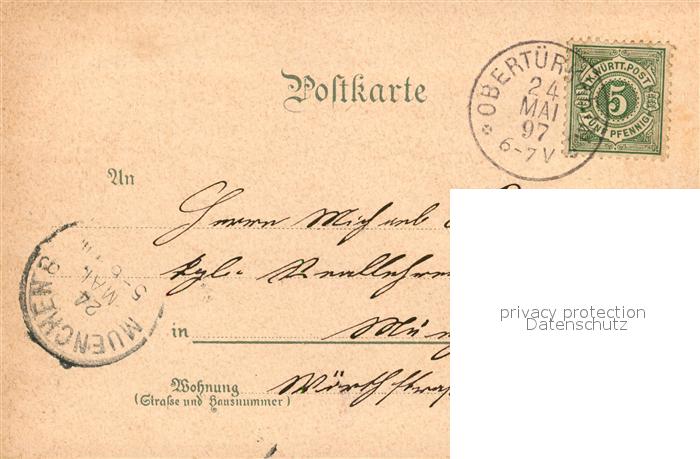 Postkarte
OBERTÜRK
24
MAI
97
6-7V
K.WÜRTT.POST
5
FÜNF PFENNIG
An
Herrn Michael
kgl. Reallehrer
MUENCHEN 8
24
MAI
5-6
in
Mün
Wohnung
(Straße und Hausnummer)
Wörthstraß
privacy protection
Datenschutz